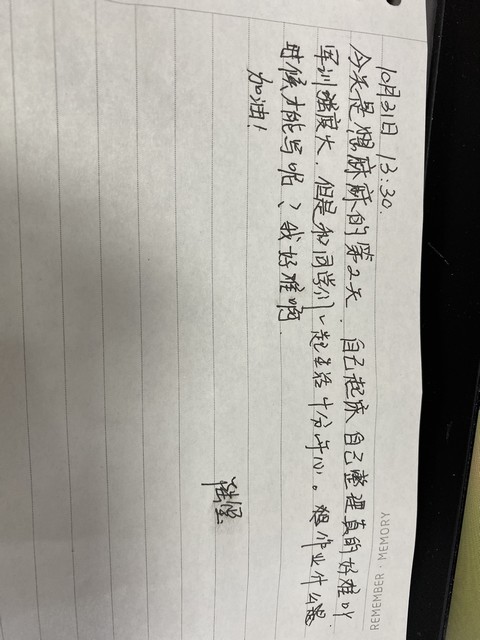 REMEMBER · MEMORY
10月31日 13:30.
今天是想麻麻的第2天 自己起床自己整理真的好难吖
军训强度大,但是和同学们一起生活十分开心。想作业什么
时候才能写呢?我好难啊
加油!